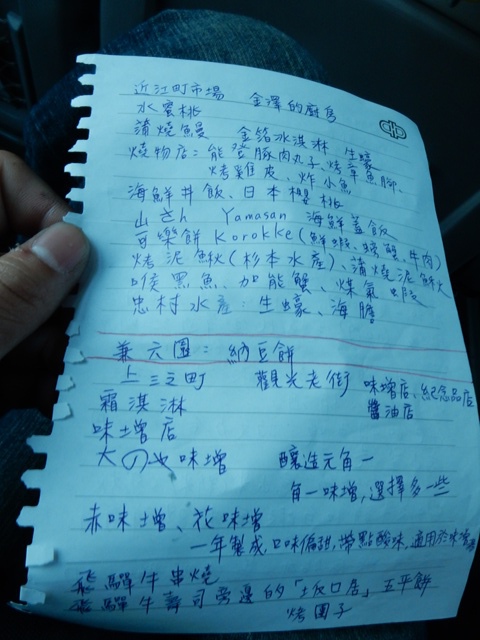 近江町市場 金澤的廚房
水蜜桃
蒲燒鰻 金箔冰淇淋 生蠔
燒物店:能登豚肉丸子、烤章魚腳、
烤雞皮、炸小魚
海鮮丼飯、日本櫻桃
山さん Yamasan 海鮮蓋飯
可樂餅 Korokke (鮮蝦、螃蟹、牛肉)
烤泥鰍(杉本水產)、蒲燒泥鰍
喉黑魚、加能蟹、煤氣蝦
忠村水產:生蠔、海膽
兼六園:納豆餅
上三之町 觀光老街 味增店、紀念品店
醬油店
霜淇淋
味增店
大のや味增 釀造元角一
角一味增,選擇多一些
赤味增、花味增
一年製成,口味偏甜,帶點酸味,適用於味增
飛驒牛串燒
飛驒牛壽司旁邊的「坂口居」五平餅
烤團子